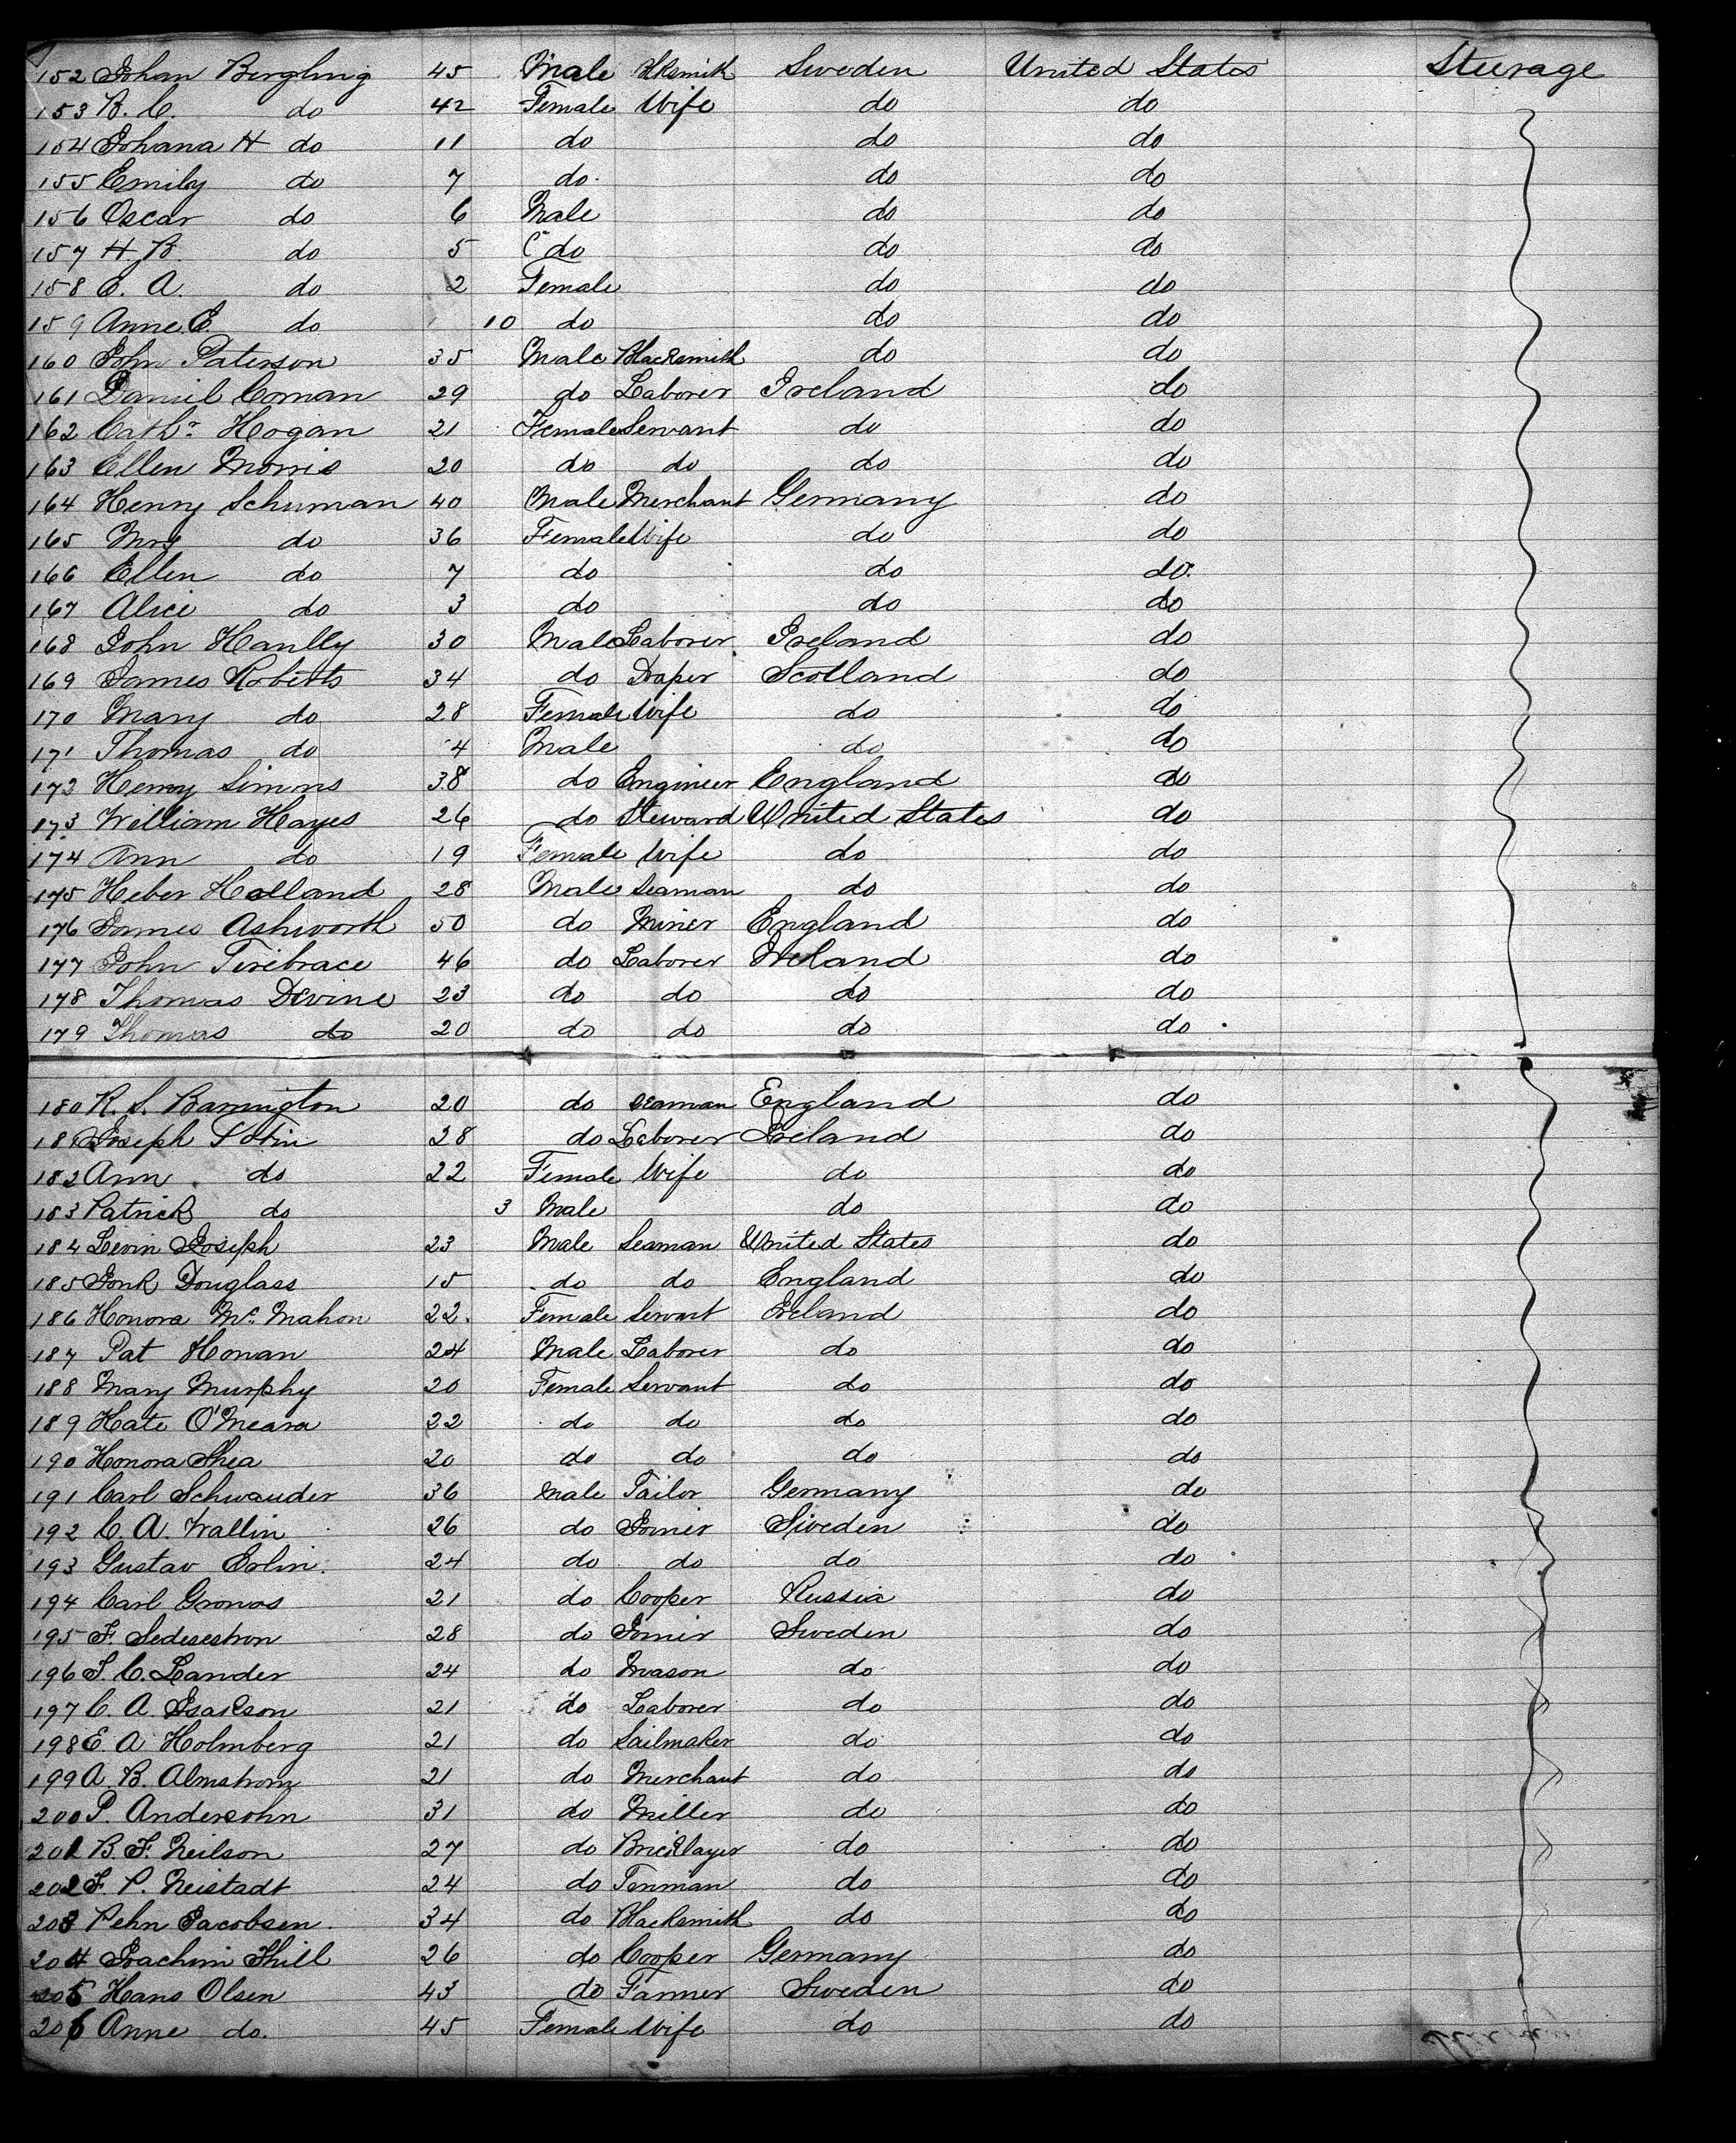 152 Johan Bergling 45 Male Blksmith Sweden United States Steerage
153 B. C. do 42 Female Wife do do
154 Johana H do 11 do do do
155 Emily do 7 do do do
156 Oscar do 6 Male do do
157 H. B. do 5 do do do
158 C. A. do 2 Female do do
159 Anne E. do 10 do do do
160 John Paterson 35 Male Blacksmith do do
161 Daniel Conan 29 do Laborer Ireland do
162 Cathr Hogan 21 Female Servant do do
163 Ellen Morris 20 do do do do
164 Henry Schuman 40 Male Merchant Germany do
165 Mrs do 36 Female Wife do do
166 Ellen do 7 do do do
167 Alice do 3 do do do
168 John Hanlly 30 Male Laborer Ireland do
169 James Roberts 34 do Draper Scotland do
170 Mary do 28 Female Wife do do
171 Thomas do 4 Male do do
172 Henry Simms 38 do Engineer England do
173 William Hayes 26 do Steward United States do
174 Ann do 19 Female Wife do do
175 Heber Holland 28 Male Seaman do do
176 James Ashworth 50 do Miner England do
177 John Firebrace 46 do Laborer Ireland do
178 Thomas Devine 23 do do do do
179 Thomas do 20 do do do do
180 R. S. Barrington 20 do Seaman England do
181 Joseph Tobin 28 do Laborer Ireland do
182 Ann do 22 Female Wife do do
183 Patrick do 3 Male do do
184 Levin Joseph 23 Male Seaman United States do
185 Douglass 15 do do England do
186 Honora Mc Mahon 22 Female Servant Ireland do
187 Pat Honan 24 Male Laborer do do
188 Mary Murphy 20 Female Servant do do
189 Kate O'Meara 22 do do do do
190 Honora Shea 20 do do do do
191 Carl Schwauder 36 Male Tailor Germany do
192 C. A. Wallin 26 do Joiner Sweden do
193 Gustav Erlin 24 do do do do
194 Carl Gronos 21 do Cooper Russia do
195 F. Sedesestron 28 do Joiner Sweden do
196 S. C. Leander 24 do Mason do do
197 C. A. Isakson 21 do Laborer do do
198 E. A Holmberg 21 do Sailmaker do do
199 A. B. Almstrom 21 do Merchant do do
200 P. Andersohn 31 do Miller do do
201 B. F. Neilson 27 do Bricklayer do do
202 F. P. Neistadt 24 do do do
203 Pehn Jacobsen 34 do Blacksmith do do
204 Joachim Thill 26 do Cooper Germany do
205 Hans Olsen 43 do Farmer Sweden do
206 Anne do. 45 Female Wife do do